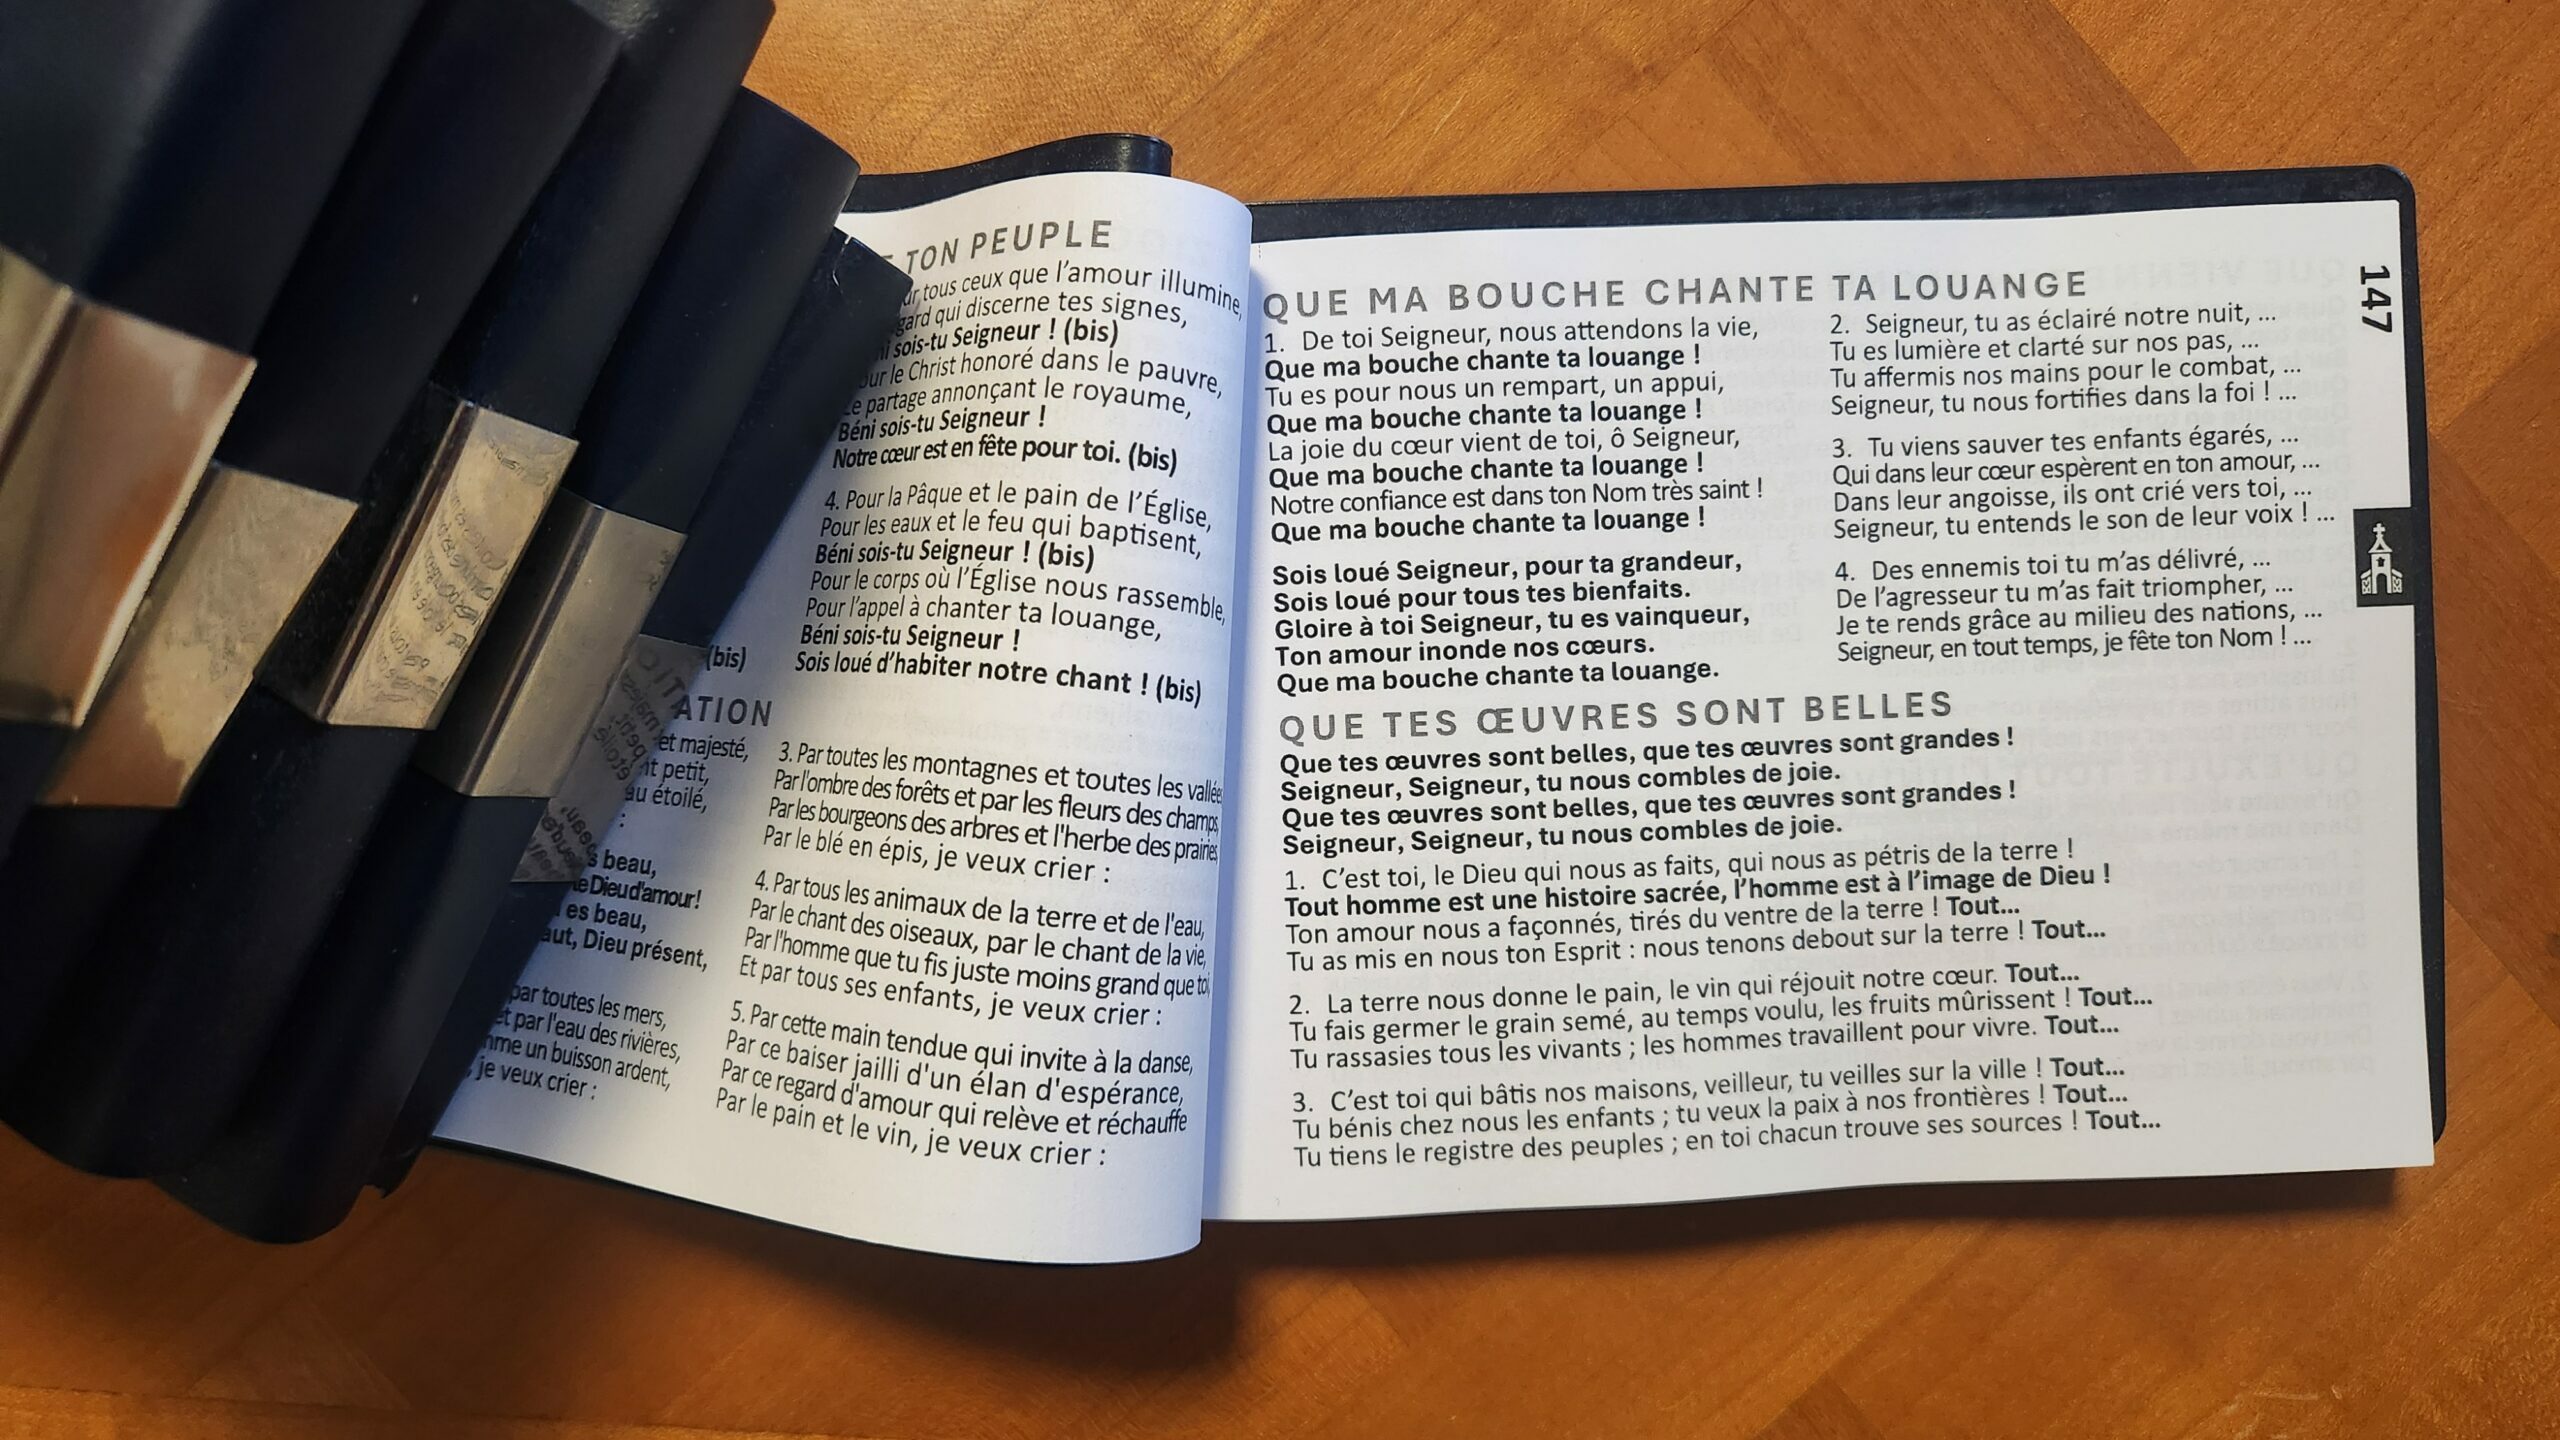 TON PEUPLE
tous ceux que l'amour illumine,
qui discerne tes signes,
sois-tu Seigneur ! (bis)
le Christ honoré dans le pauvre,
Le partage annonçant le royaume,
Béni sois-tu Seigneur !
Notre cœur est en fête pour toi. (bis)
4. Pour la Pâque et le pain de l'Église,
Pour les eaux et le feu qui baptisent,
Béni sois-tu Seigneur ! (bis)
Pour le corps où l'Église nous rassemble,
Pour l'appel à chanter ta louange,
Béni sois-tu Seigneur !
Sois loué d'habiter notre chant ! (bis)
(bis)
et majesté,
petit,
étoilé,
:
beau,
Dieu d'amour!
es beau,
Dieu présent,
par toutes les mers,
et par l'eau des rivières,
un buisson ardent,
je veux crier :
3. Par toutes les montagnes et toutes les
Par l'ombre des forêts et par les fleurs des champs,
Par les bourgeons des arbres et l'herbe des prairies
Par le blé en épis, je veux crier :
4. Par tous les animaux de la terre et de l'eau,
Par le chant des oiseaux, par le chant de la vie,
Par l'homme que tu fis juste moins grand que toi,
Et par tous ses enfants, je veux crier :
5. Par cette main tendue qui invite à la danse,
Par ce baiser jailli d'un élan d'espérance,
Par ce regard d'amour qui relève et réchauffe
Par le pain et le vin, je veux crier :
147
QUE MA BOUCHE CHANTE TA LOUANGE
1. De toi Seigneur, nous attendons la vie,
Que ma bouche chante ta louange !
Tu es pour nous un rempart, un appui,
Que ma bouche chante ta louange !
La joie du cœur vient de toi, ô Seigneur,
Que ma bouche chante ta louange !
Notre confiance est dans ton Nom très saint !
Que ma bouche chante ta louange !
Sois loué Seigneur, pour ta grandeur,
Sois loué pour tous tes bienfaits.
Gloire à toi Seigneur, tu es vainqueur,
Ton amour inonde nos cœurs.
Que ma bouche chante ta louange.
2. Seigneur, tu as éclairé notre nuit, ...
Tu es lumière et clarté sur nos pas, ...
Tu affermis nos mains pour le combat, ...
Seigneur, tu nous fortifies dans la foi ! ...
3. Tu viens sauver tes enfants égarés, ...
Qui dans leur cœur espèrent en ton amour, ...
Dans leur angoisse, ils ont crié vers toi, ...
Seigneur, tu entends le son de leur voix ! ...
4. Des ennemis toi tu m'as délivré, ...
De l'agresseur tu m'as fait triompher, ...
Je te rends grâce au milieu des nations, ...
Seigneur, en tout temps, je fête ton Nom ! ...
QUE TES ŒUVRES SONT BELLES
Que tes œuvres sont belles, que tes œuvres sont grandes !
Seigneur, Seigneur, tu nous combles de joie.
Que tes œuvres sont belles, que tes œuvres sont grandes !
Seigneur, Seigneur, tu nous combles de joie.
1. C'est toi, le Dieu qui nous as faits, qui nous as pétris de la terre !
Tout homme est une histoire sacrée, l'homme est à l'image de Dieu !
Ton amour nous a façonnés, tirés du ventre de la terre ! Tout...
Tu as mis en nous ton Esprit : nous tenons debout sur la terre ! Tout...
2. La terre nous donne le pain, le vin qui réjouit notre cœur. Tout...
Tu fais germer le grain semé, au temps voulu, les fruits mûrissent ! Tout...
Tu rassasies tous les vivants ; les hommes travaillent pour vivre. Tout...
3. C'est toi qui bâtis nos maisons, veilleur, tu veilles sur la ville ! Tout...
Tu bénis chez nous les enfants ; tu veux la paix à nos frontières ! Tout...
Tu tiens le registre des peuples ; en toi chacun trouve ses sources ! Tout...